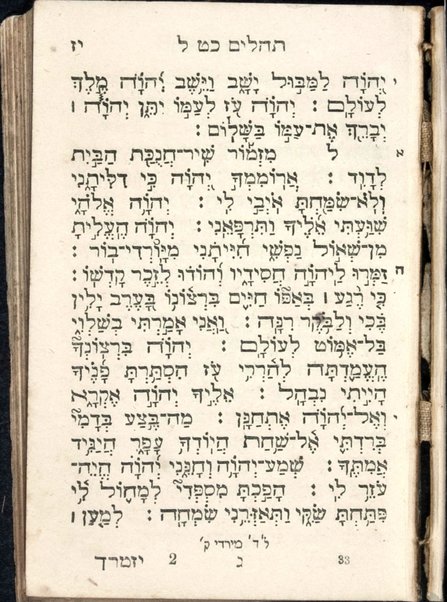 תהלים כט ל יז
י יְ֭הוָה לַמַּבּ֣וּל יָשָׁ֑ב וַיֵּ֥שֶׁב יְ֝הוָ֗ה מֶ֣לֶךְ
לְעוֹלָֽם׃ יְהוָ֗ה עֹ֭ז לְעַמּ֣וֹ יִתֵּ֑ן יְהוָ֓ה ׀
יְבָרֵ֖ךְ אֶת־עַמּ֣וֹ בַשָּׁלֽוֹם׃
א ל מִזְמ֡וֹר שִׁיר־חֲנֻכַּ֖ת הַבַּ֣יִת
לְדָוִֽד׃ אֲרוֹמִמְךָ֣ יְ֭הוָה כִּ֣י דִלִּיתָ֑נִי
וְלֹא־שִׂמַּ֖חְתָּ אֹיְבַ֣י לִֽי׃ יְהוָ֥ה אֱלֹהָ֑י
שִׁוַּ֥עְתִּי אֵ֝לֶ֗יךָ וַתִּרְפָּאֵֽנִי׃ יְהוָ֗ה הֶעֱלִ֣יתָ
מִן־שְׁא֣וֹל נַפְשִׁ֑י חִ֝יִּיתַ֗נִי מִיָּֽורְדִי־בֽוֹר׃
ה זַמְּר֣וּ לַיהוָ֣ה חֲסִידָ֑יו וְ֝הוֹד֗וּ לְזֵ֣כֶר קָדְשֽׁוֹ׃
כִּ֤י רֶ֨גַע ׀ בְּאַפּוֹ֮ חַיִּ֪ים בִּרְצ֫וֹנ֥וֹ בָּ֭עֶרֶב יָלִ֥ין
בֶּ֗כִי וְלַבֹּ֥קֶר רִנָּֽה׃ וַ֭אֲנִי אָמַ֣רְתִּי בְשַׁלְוִ֑י
בַּל־אֶמּ֥וֹט לְעוֹלָֽם׃ יְֽהוָ֗ה בִּרְצוֹנְךָ֮
הֶעֱמַ֪דְתָּה לְֽהַרְרִ֫י עֹ֥ז הִסְתַּ֥רְתָּ פָנֶ֗יךָ
הָיִ֥יתִי נִבְהָֽל׃ אֵלֶ֣יךָ יְהוָ֣ה אֶקְרָ֑א
י וְאֶל־יְ֝הוָ֗ה אֶתְחַנָּֽן׃ מַה־בֶּ֥צַע בְּדָמִי֮
בְּרִדְתִּ֪י אֶ֫ל־שָׁ֥חַת הֲיוֹדְךָ֥ עָפָ֑ר הֲיַגִּ֥יד
אֲמִתֶּֽךָ׃ שְׁמַע־יְהוָ֥ה וְחָנֵּ֑נִי יְ֝הוָ֗ה הֱיֵה־
עֹזֵ֥ר לִֽי׃ הָפַ֣כְתָּ מִסְפְּדִי֮ לְמָח֪וֹל לִ֥י
פִּתַּ֥חְתָּ שַׂקִּ֑י וַֽתְּאַזְּרֵ֥נִי שִׂמְחָֽה׃ לְמַ֤עַן ׀
ל׳ד׳ מיורדי ק׳
יזטרך 2 ג 33